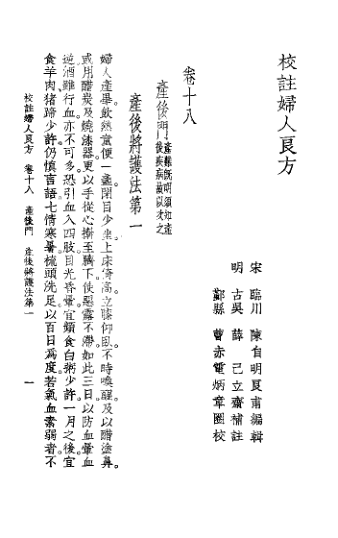 校註婦人良方
宋 臨川 陳自明良甫編輯
明 古吳 薛己立齋補註
鄞縣 曹赤電炳章圈校
卷十八
產後門
產難既明須知產
後疾病故以次之
產後將護法第一
婦人產畢飲熱童便一盞閉目少坐上床倚高立膝仰臥不時喚醒及以醋塗鼻
或用醋炭及燒漆器更以手從心擀至臍下使惡露不滯如此三日以防血暈血
逆酒雖行血亦不可多恐引血入四肢且光昏暈宜頻食白粥少許一月之後宜
食羊肉豬蹄少許仍慎言語七情寒暑梳頭洗足以百日為度若氣血素弱者不
校註婦人良方 卷十八 產後門 產後將護法第一 一